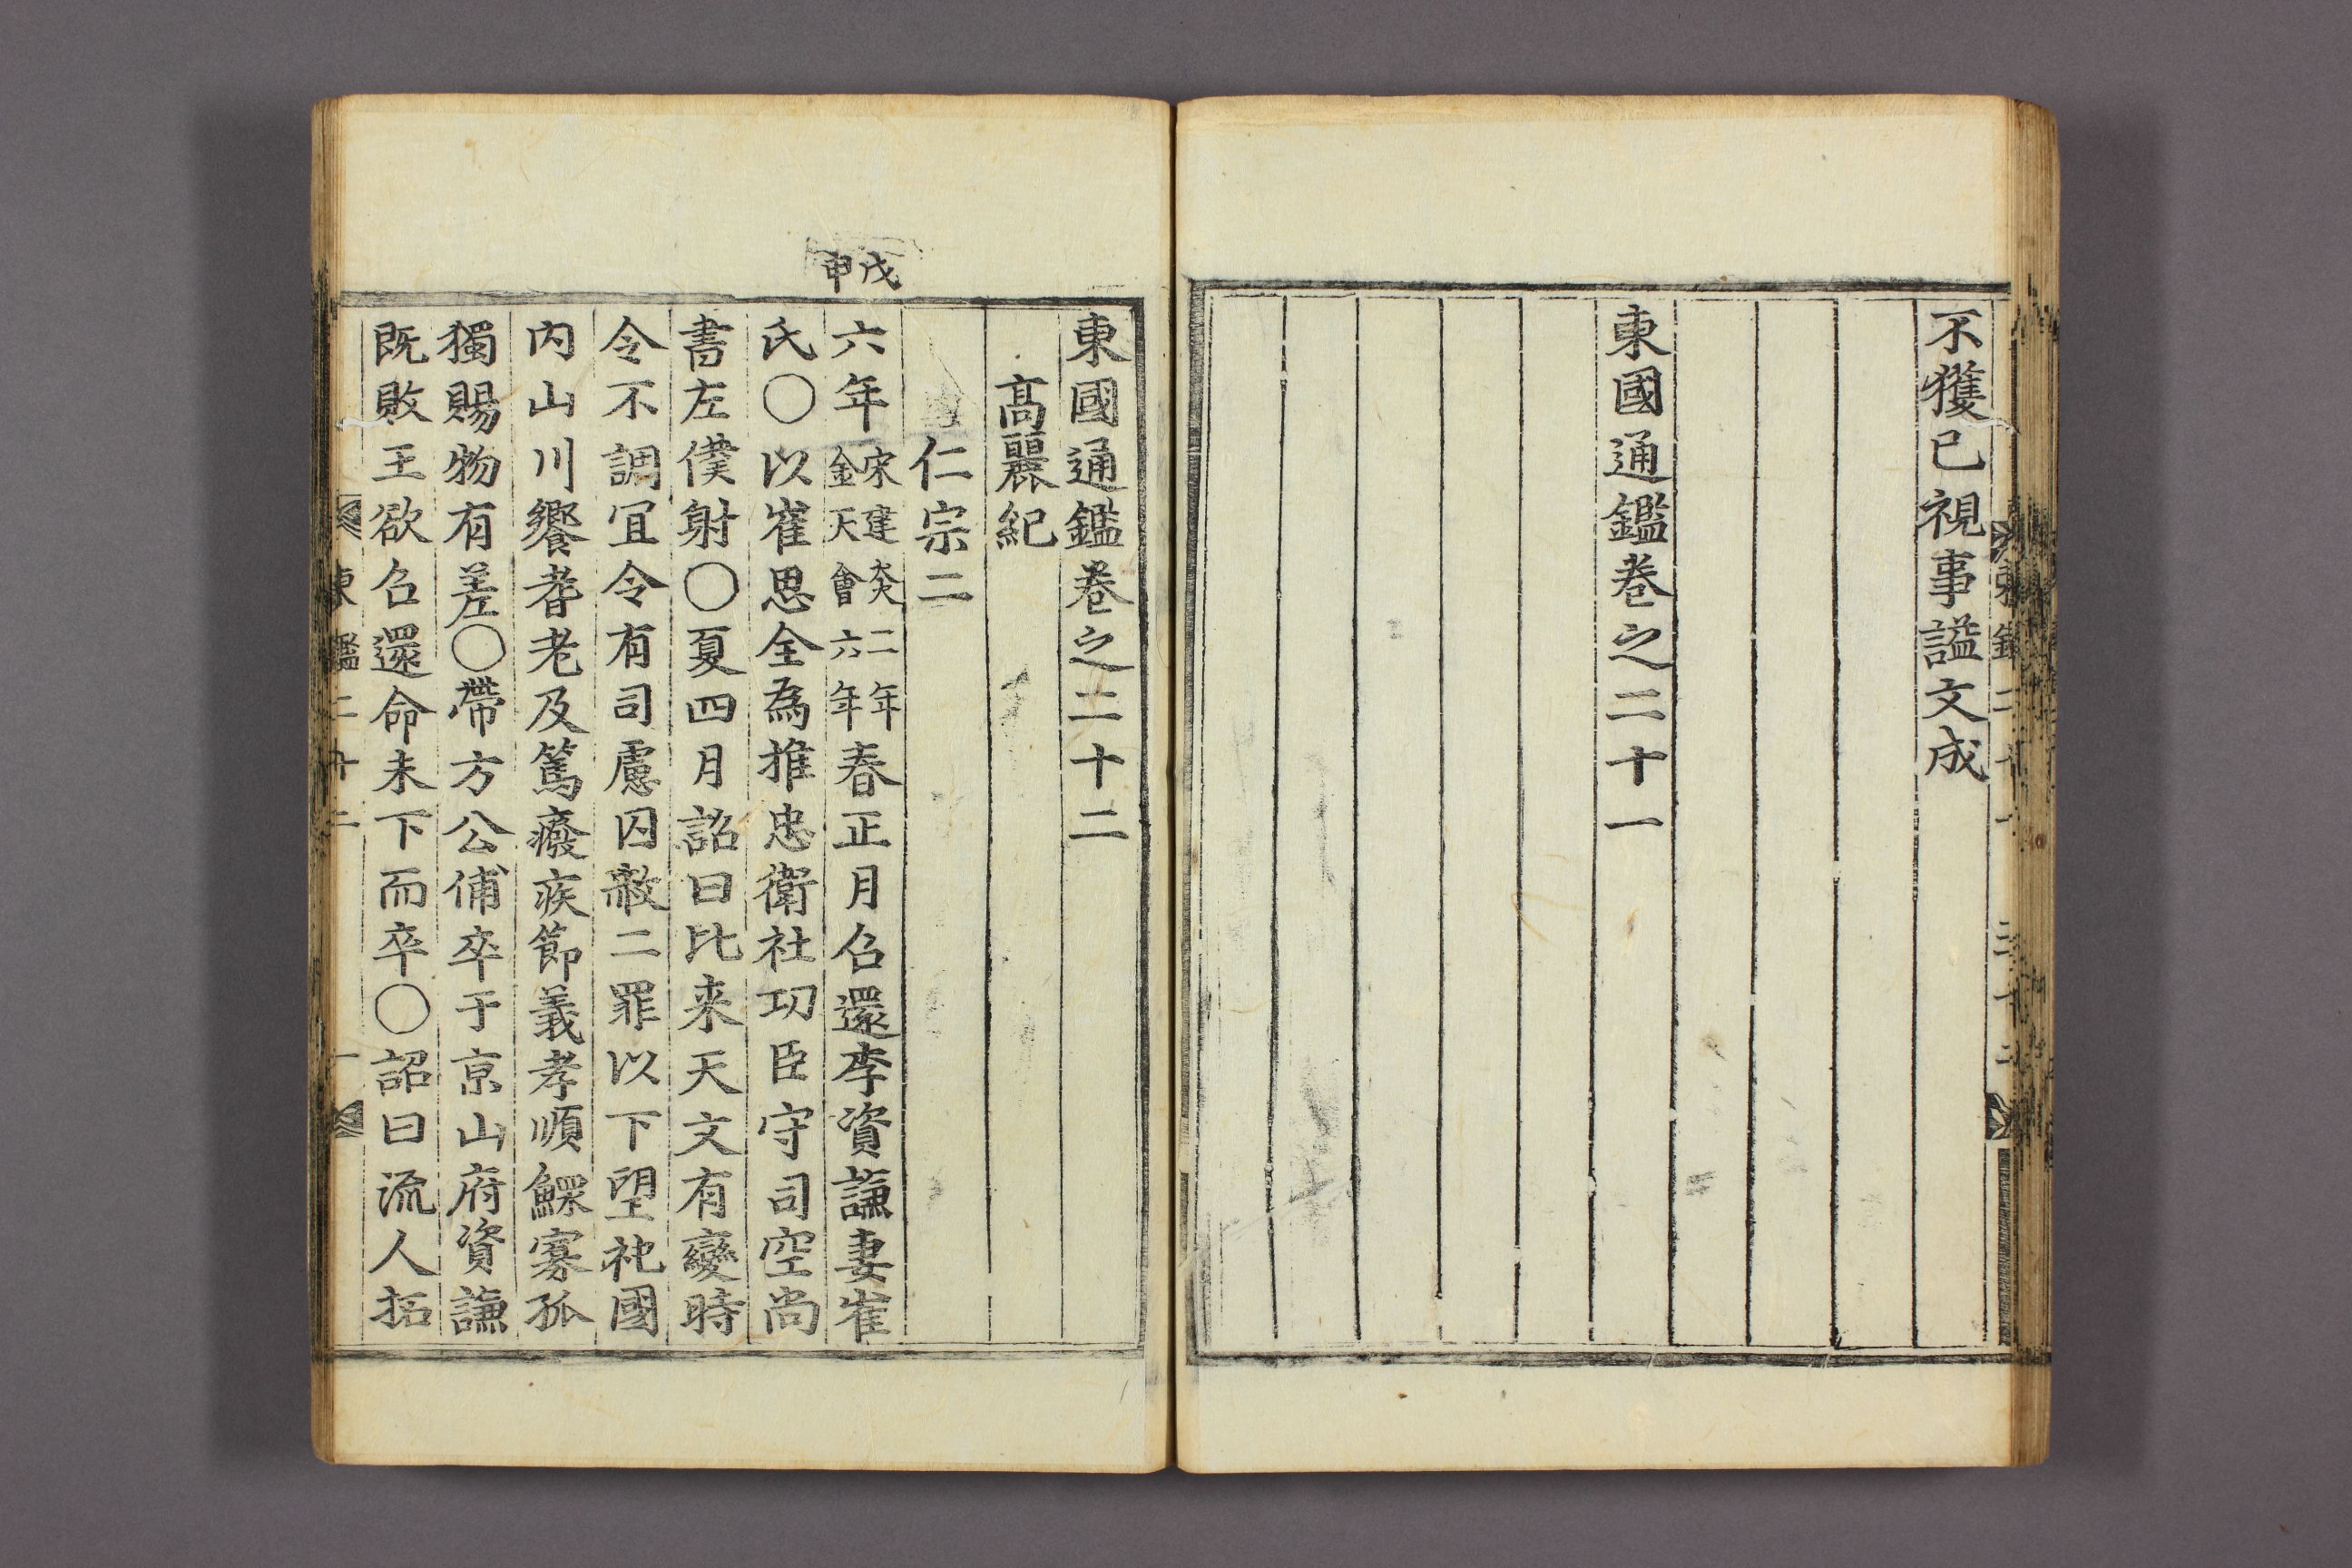 不獲已視事謚文成
東國通鑑卷之二十一
東國通鑑卷之二十二
高麗紀
仁宗二
戊申
六年宋建炎二年金天會六年春正月召還李資謙妻崔
氏○以崔思全為推忠衛社功臣守司空尚
書左僕射○夏四月詔曰比来天文有變時
令不調冝令有司慮囚赦二罪以下望祀國
内山川饗耆老及篤癈疾節義孝順鰥寡孤
獨賜物有差○帶方公俌卒于京山府資謙
既敗王欲召還命未下而卒○詔曰流人拓
東鑑二十二 一